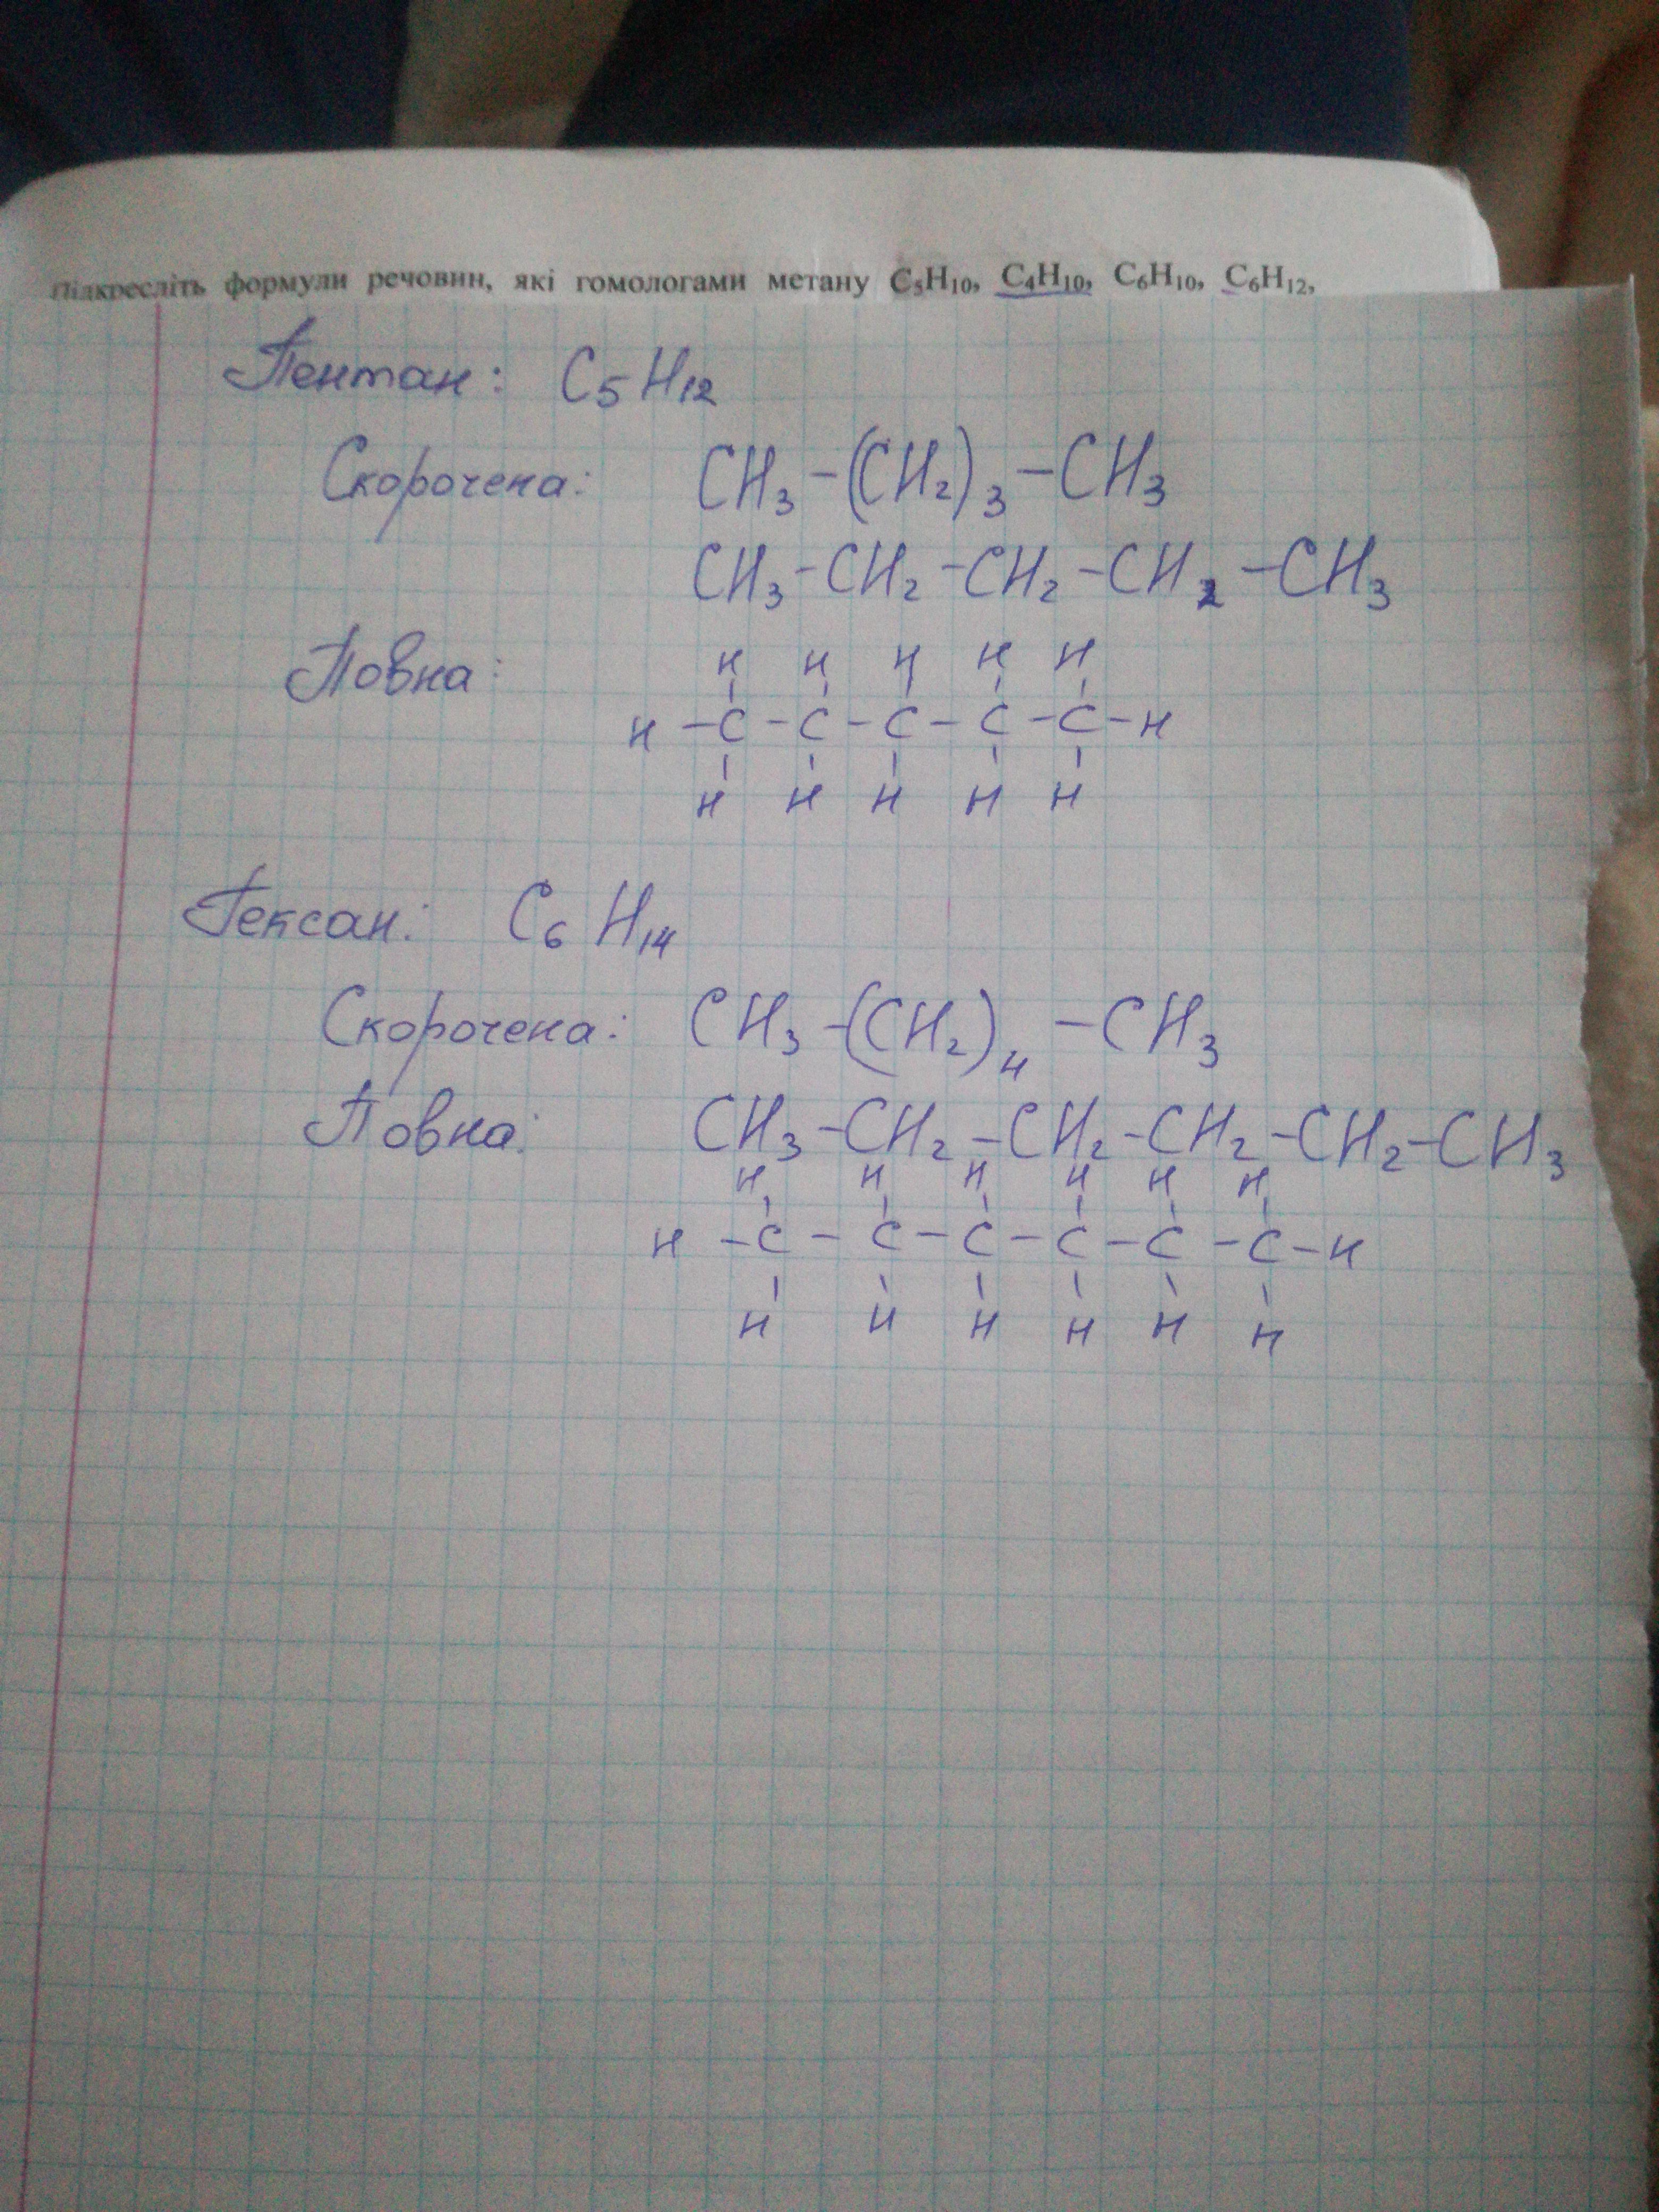 Підкресліть формули речовин, які гомологами метану C₅H₁₀, C₄H₁₀, C₆H₁₀, C₆H₁₂,
Пентан: C₅H₁₂
Скорочена: CH₃-(CH₂)₃-CH₃
CH₃-CH₂-CH₂-CH₂-CH₃
Повна:
H H H H H
H-C-C-C-C-C-H
H H H H H
Гексан: C₆H₁₄
Скорочена: CH₃-(CH₂)₄-CH₃
Повна: CH₃-CH₂-CH₂-CH₂-CH₂-CH₃
H H H H H H
H-C-C-C-C-C-C-H
H H H H H H